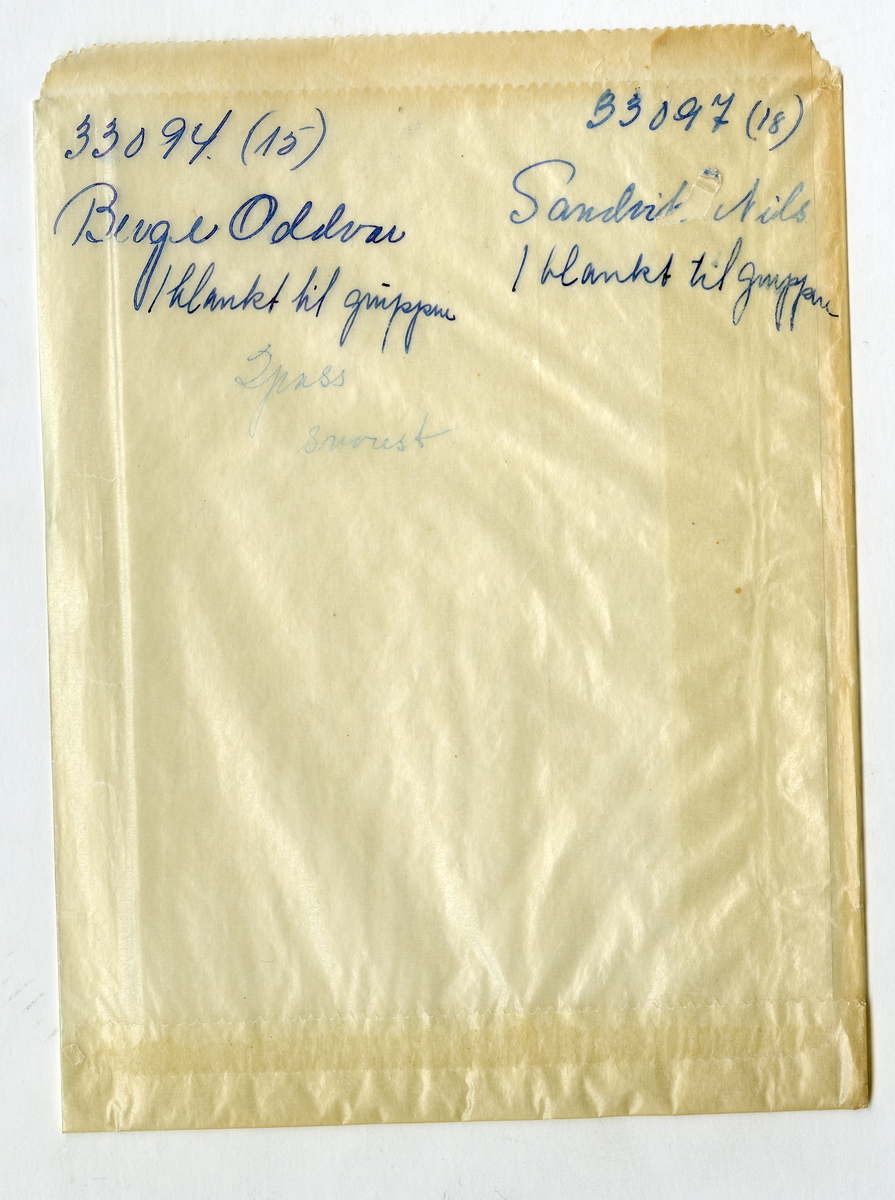 33094. (15)
Berge Oddvar
1 blankt til gruppen
2 pass
33097 (18)
Sandvik Nils
1 blankt til gruppen